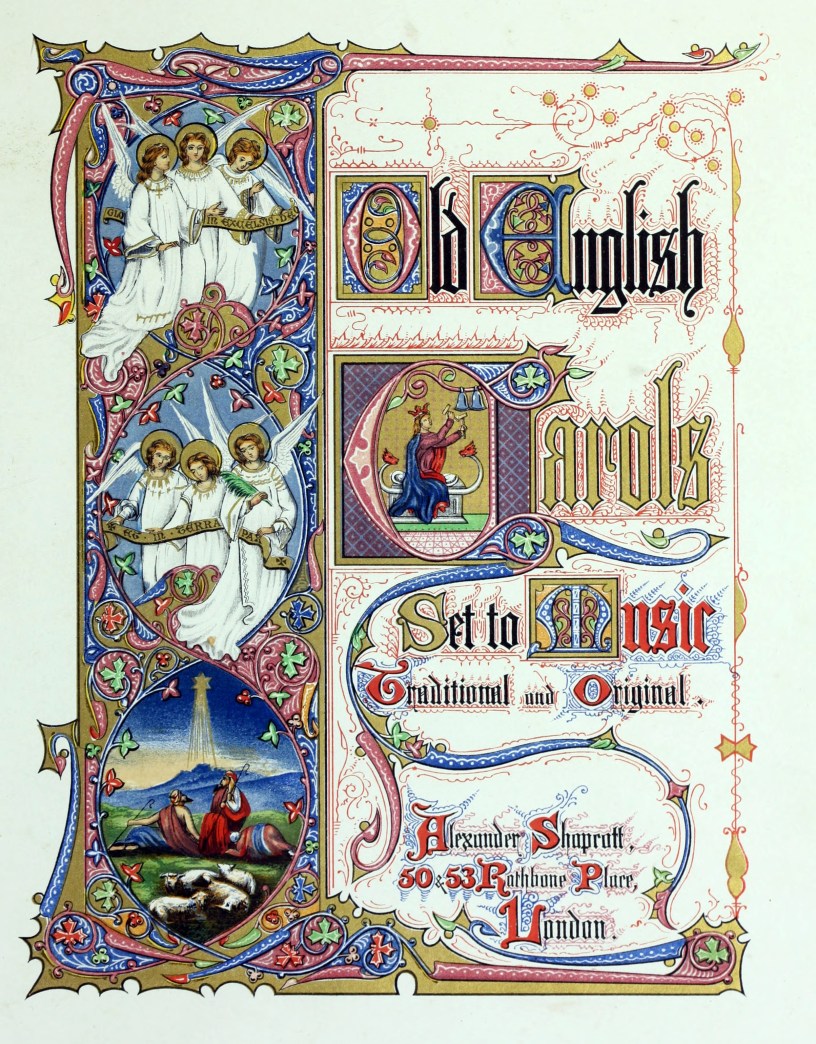 GLO IN EXCELSIS · DE
Old English
Carols
ET · IN · TERRA PA
Set to Music
Traditional and Original.
Alexander Shapcott,
50 & 53 Rathbone Place,
London.